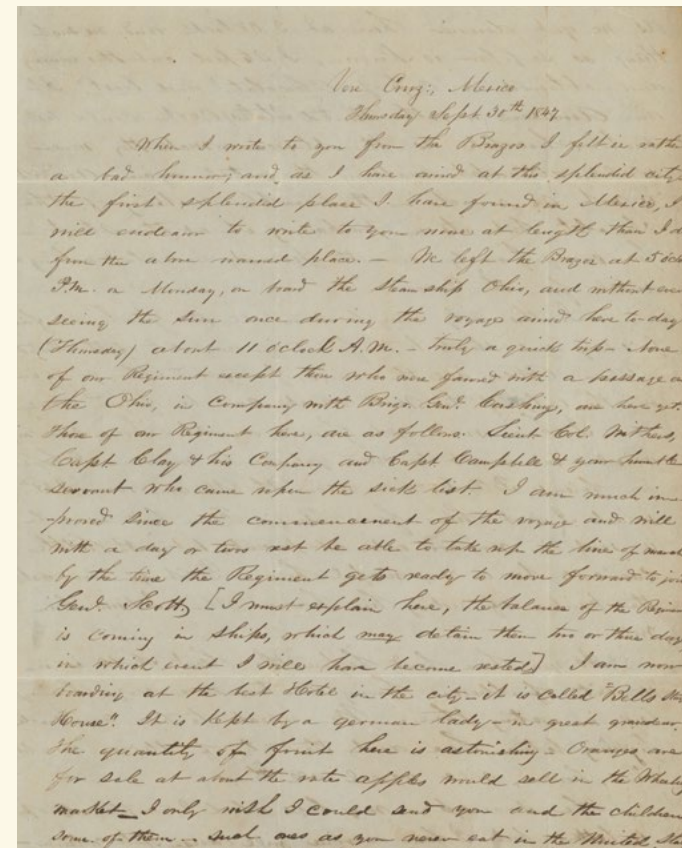 Vera Cruz, Mexico
Thursday Sept 30th 1847
When I wrote to you from the Brazos I felt in rather
a bad humor, and as I have arrived at this splendid city
the first splendid place I have found in Mexico, I
will endeavor to write to you more at length than I d
from the above named place. — We left the Brazos at 5 ocl
P.M. on Monday, on board the Steam ship Ohio, and without ever
seeing the Sun once during the voyage arrived here to-day
(Thursday) about 11 oclock A.M. — truly a quick trip — None
of our Regiment except those who were favored with a passage o
the Ohio, in Company with Brigr. Genl. Cushing, are here yet.
Those of our Regiment here, are as follows: Lieut Col. Withers,
Capt Clay & his Company and Capt Campbell & your humble
servant who came upon the sick list. I am much im
-proved since the commencement of the voyage and will
with a day or two rest be able to take up the line of march
by the time the Regiment gets ready to move forward to join
Genl. Scott, [I must explain here, the balance of the Regimen
is coming in ships, which may detain them two or three days
in which event I will have become rested] I am now
boarding at the best Hotel in the city — it is called "Bells
House". It is Kept by a german lady — in great grandeur.
The quantity of fruit here is astonishing — Oranges are
for sale at about the rate apples would sell in the Wheeling
market — I only wish I could send you and the children
some of them — such ones as you never eat in the United Sta